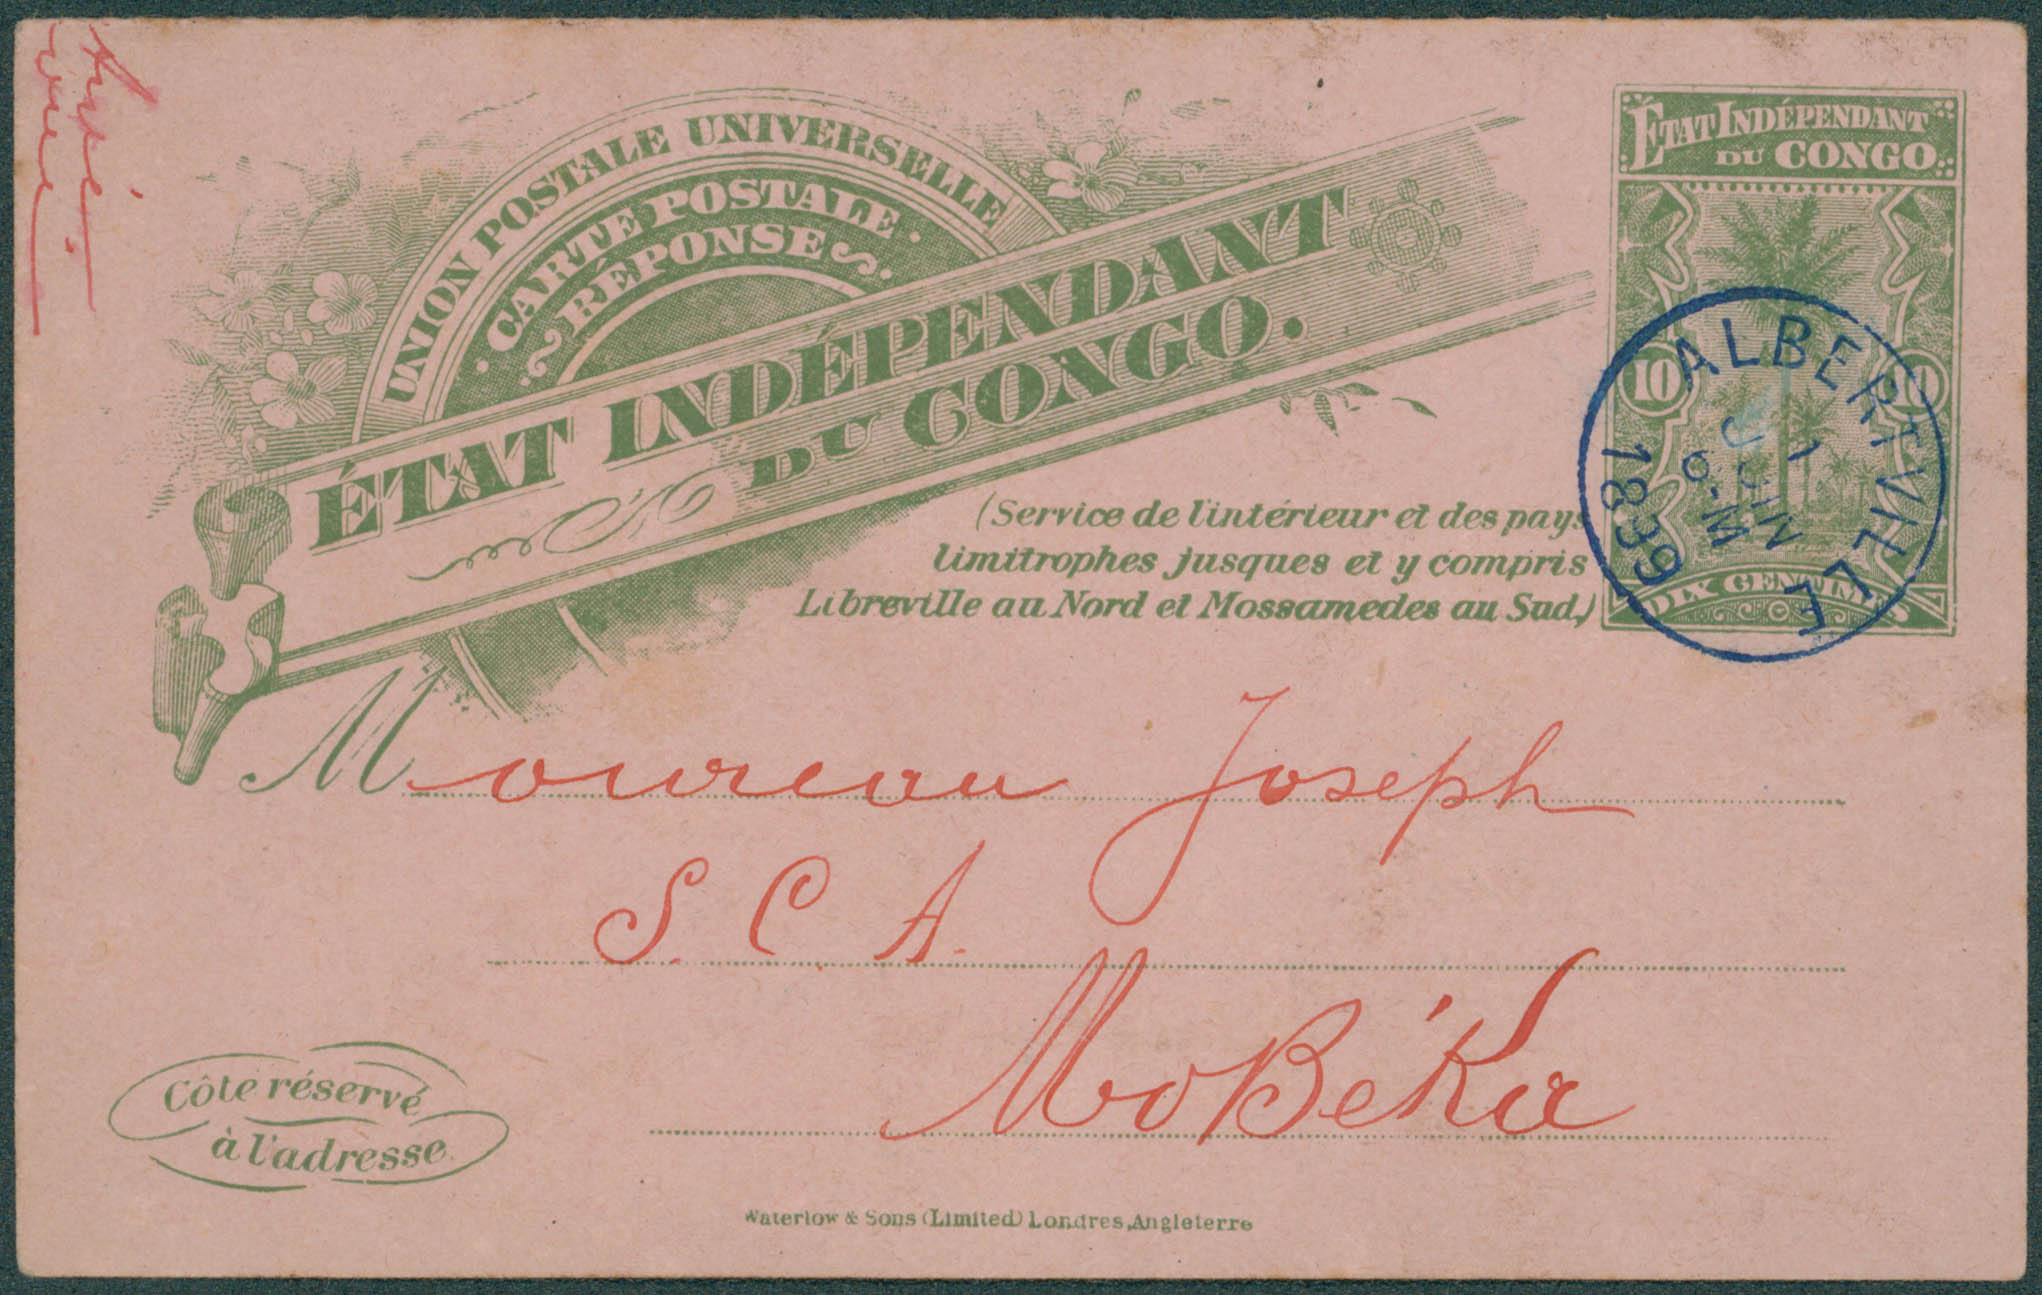 UNION POSTALE UNIVERSELLE
CARTE POSTALE
RÉPONSE
ÉTAT INDÉPENDANT
DU CONGO.
(Service de l'intérieur et des pays
limitrophes jusques et y compris
Libreville au Nord et Mossamedes au Sud,)
ÉTAT INDÉPENDANT
DU CONGO
10 10
DIX CENTIMES
ALBERTVILLE
1 JUIN
9-M
1899
Moureau Joseph
S. C. A.
MoBéKa
Côte réservé
à l'adresse
Waterlow & Sons (Limited) Londres, Angleterre